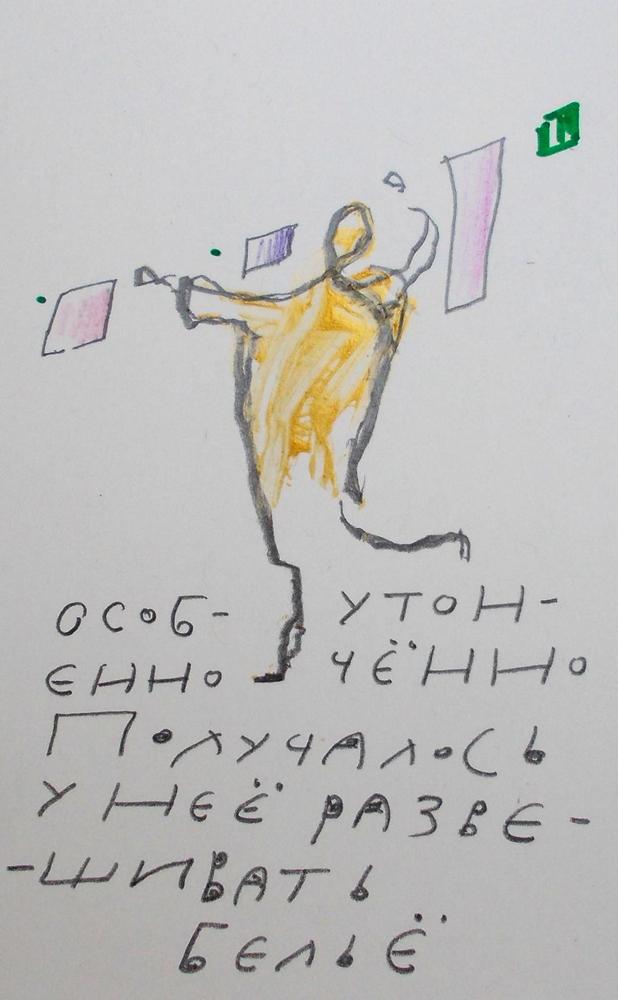 ОСОБ- УТОН-
ЕННО ЧЁННО
ПОЛУЧАЛОСЬ
У НЕЁ РАЗВЕ-
-ШИВАТЬ
БЕЛЬЁ